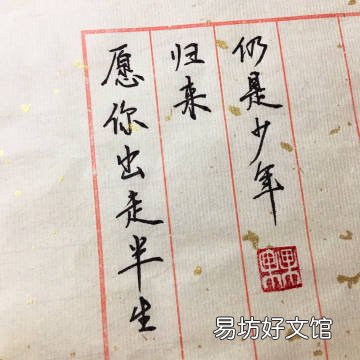 愿你出走半生
归来
仍是少年
易坊好文馆